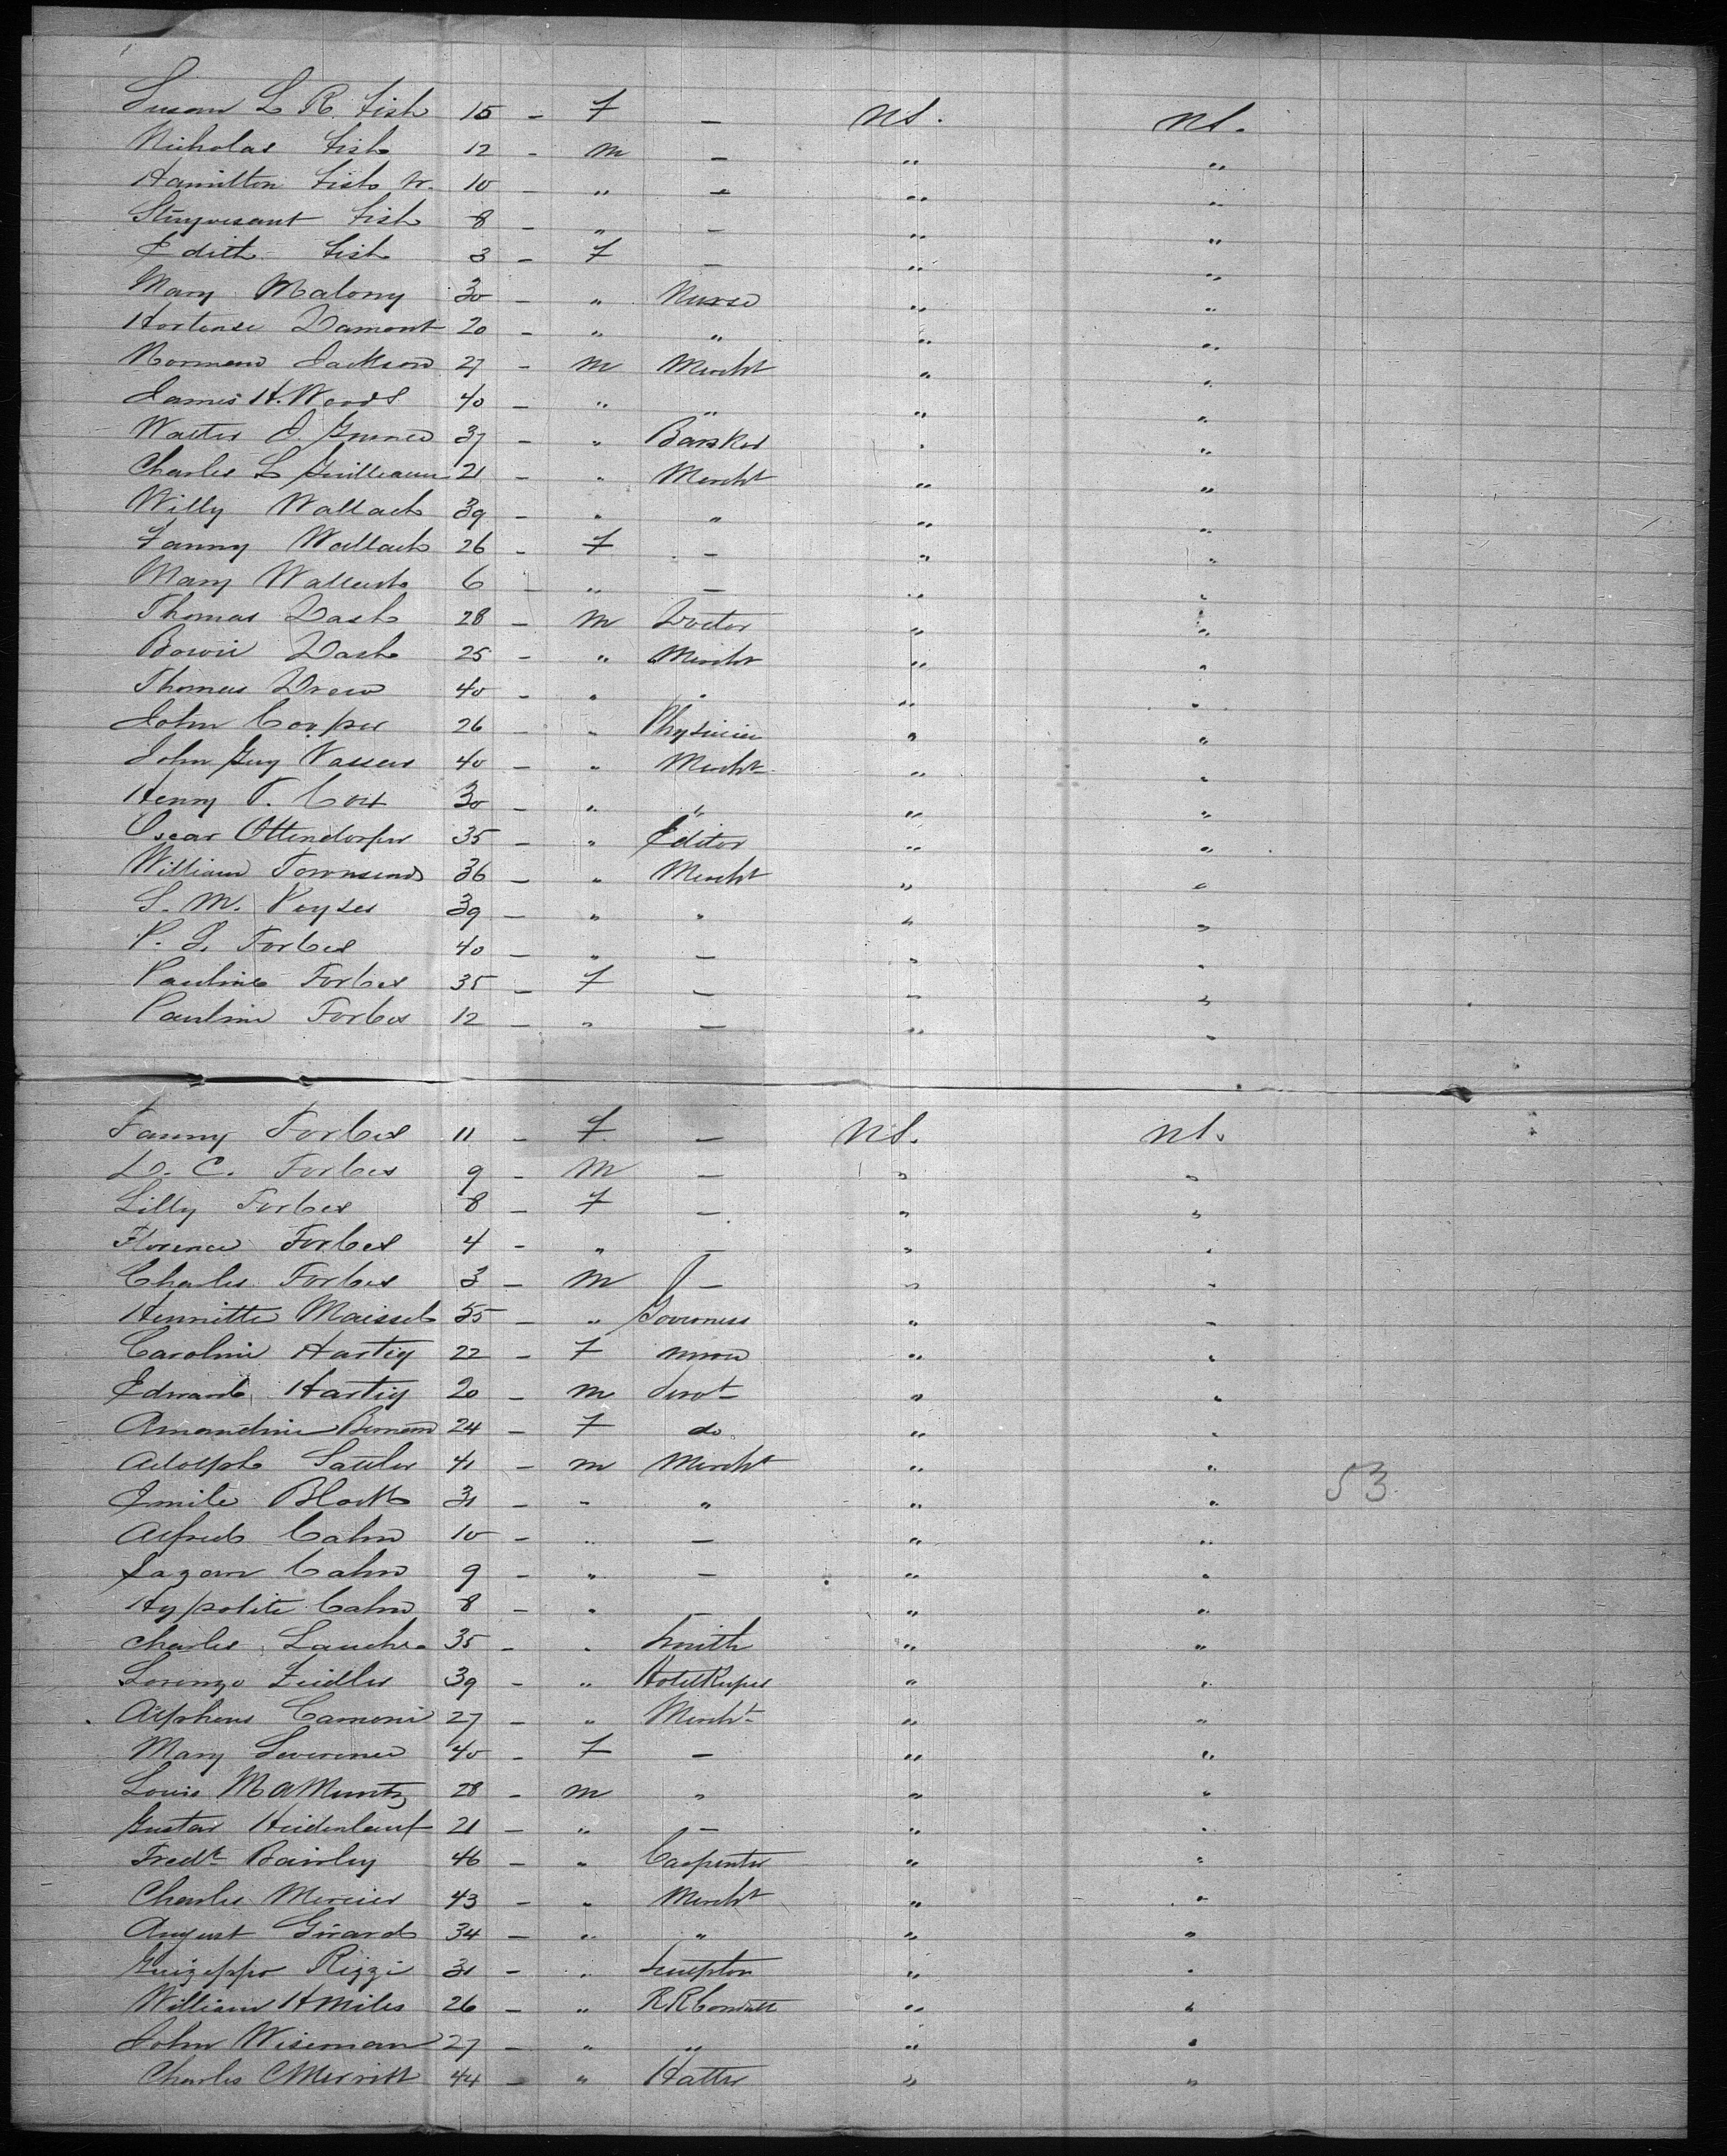 Susan L R. Fish 15 - F - U.S. U.S.
Nicholas Fish 12 - M - " "
Hamilton Fish Jr. 10 - " - " "
Stuyvesant Fish 8 - " - " "
Edith Fish 3 - F - " "
Mary Malony 30 - " Nurse " "
Hortense Damont 20 - " " " "
Norman Jackson 27 - M Mercht " "
James H. Woods 40 - " " " "
Walter S. Gurnee 37 - " Banker " "
Charles L Guilleaume 21 - " Mercht " "
Willy Wallach 39 - " " " "
Fanny Wallach 26 - F - " "
Mary Wallach 6 - " - " "
Thomas Dash 28 - M Doctor " "
Bowie Dash 25 - " Mercht " "
Thomas Drew 40 - " " " "
John Cooper 26 - " Physician " "
John Guy Vassar 40 - " Mercht " "
Henry T. Cox 30 - " " " "
Oscar Ottendorfer 35 - " Editor " "
William Townsend 36 - " Mercht " "
S. M. Peyser 39 - " " " "
P. S. Forbes 40 - " - " "
Pauline Forbes 35 - F - " "
Pauline Forbes 12 - " - " "
Fanny Forbes 11 - F - U.S. U.S.
D. C. Forbes 9 - M - " "
Lilly Forbes 8 - F - " "
Florence Forbes 4 - " - " "
Charles Forbes 3 - M - " "
Henriette Maissel 55 - " Governess " "
Caroline Hartig 22 - F nurse " "
Edward Hartig 20 - M Servt " "
Amandine 24 - F do " "
Adolph Sauler 41 - M Mercht " "
Emile Block 31 - " " " " 53
Alfred Cahn 10 - " - " "
Lazare Cahn 9 - " - " "
Hypolite Cahn 8 - " - " "
Charles 35 - " Smith " "
Lorenzo Zeidler 39 - " Hotelkeeper " "
Alpheus Camoni 27 - " Mercht " "
Mary Severence 40 - F - " "
Louis 28 - M " " "
Gustav Heidenlauf 21 - " - " "
Fredk Bairley 46 - " Carpenter " "
Charles Mercier 43 - " Mercht " "
August Girard 34 - " " " "
Guizeppo Rizzi 31 - " Sculptor " "
William H Miles 26 - " R R Conductt " "
John Wiseman 27 - " " " "
Charles C Merritt 44 - " Hatter " "